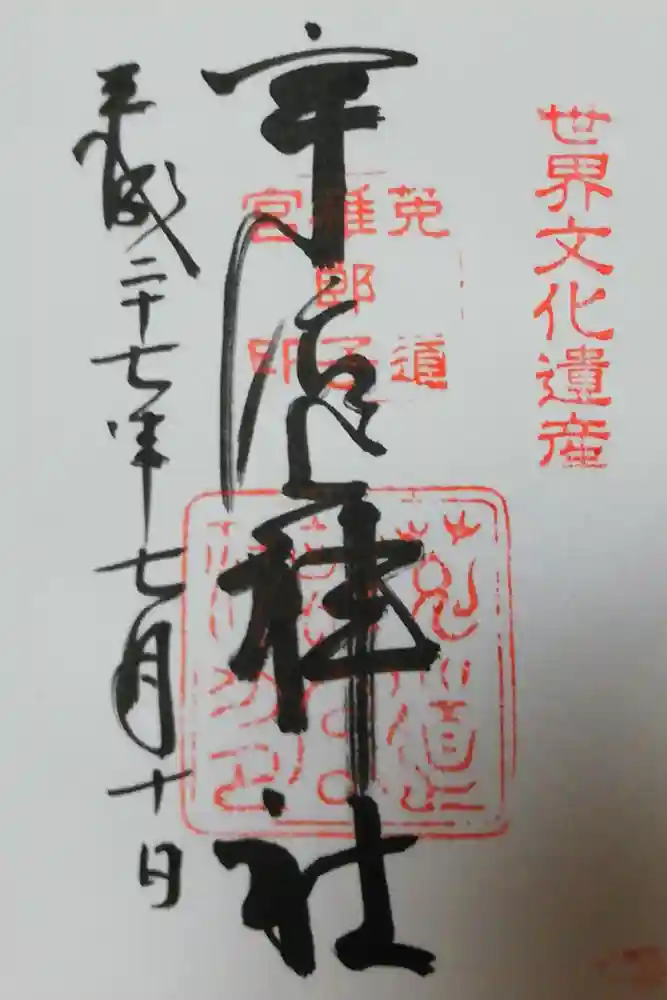 世界文化遺産
菟道
稚郎子
宮印
宇治上神社
平成二十七年七月十日